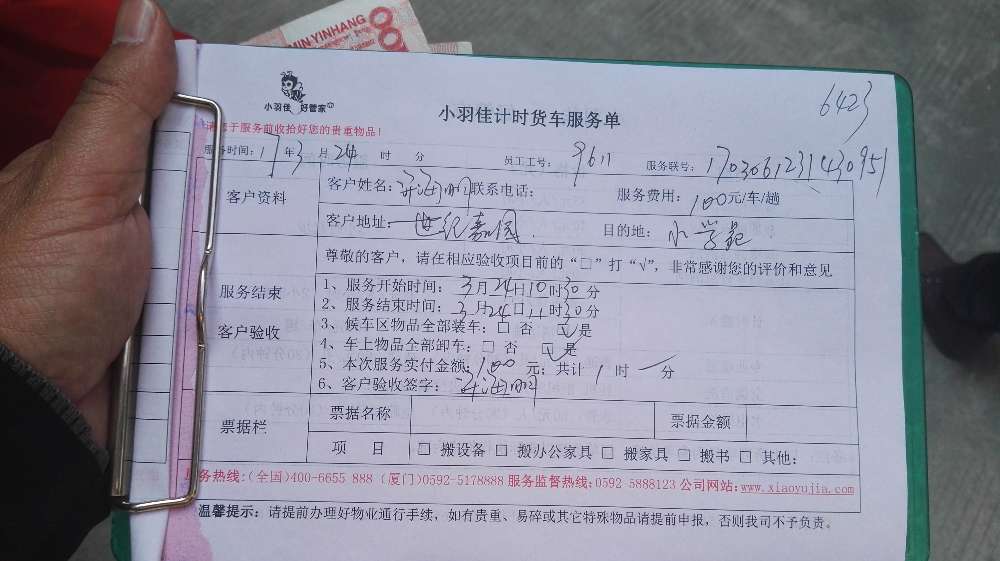 MIN YINHANG
小羽佳 好管家
小羽佳计时货车服务单
6423
请您于服务前收拾好您的贵重物品！
服务时间：17年3月24 时 分 员工工号：9611 服务联号：1703061231430951
客户资料
客户姓名： 联系电话： 服务费用：100元/车/趟
客户地址：世纪嘉园 目的地：小学苑
尊敬的客户，请在相应验收项目前的“□”打“√”，非常感谢您的评价和意见
服务结束
客户验收
1、服务开始时间：3月24日10时30分
2、服务结束时间：3月24日11时30分
3、候车区物品全部装车：□ 否 ☑是
4、车上物品全部卸车：□ 否 ☑是
5、本次服务实付金额：100元；共计1时一分
6、客户验收签字：
票据栏
票据名称 票据金额
项 目 □ 搬设备 □ 搬办公家具 □ 搬家具 □ 搬书 □ 其他：
服务热线：(全国)400-6655 888 (厦门)0592-5178888 服务监督热线：0592 5888123 公司网站：www.xiaoyujia.com
温馨提示：请提前办理好物业通行手续，如有贵重、易碎或其它特殊物品请提前申报，否则我司不予负责。